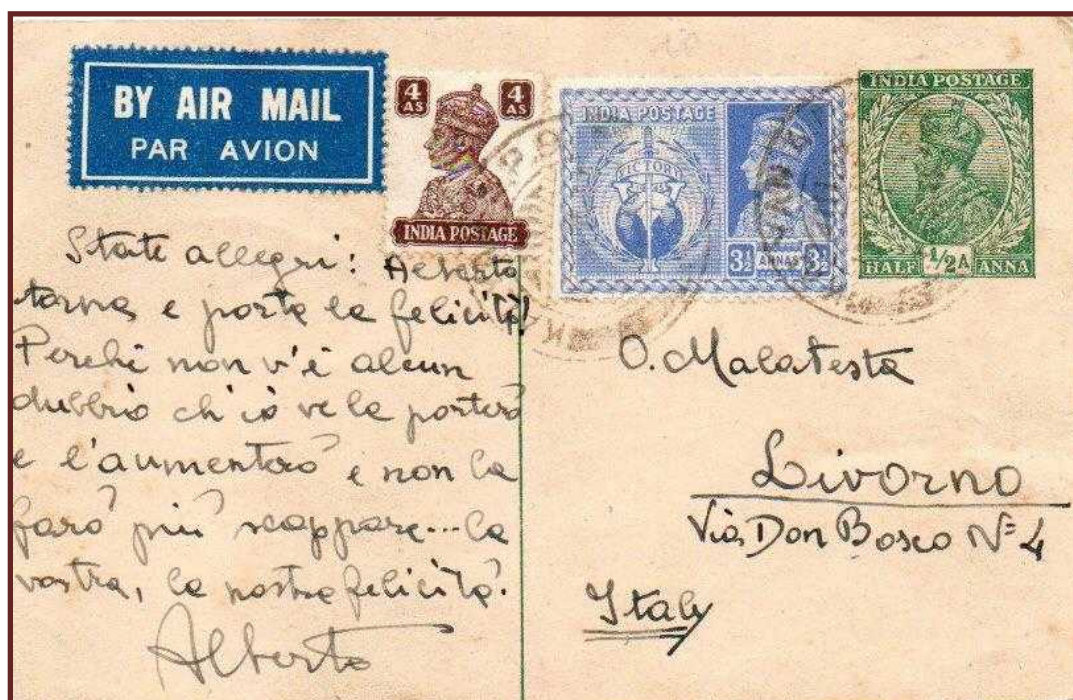 BY AIR MAIL
PAR AVION
4 AS 4 AS
INDIA POSTAGE
INDIA POSTAGE
VICTORY
3½ ANNAS 3½
INDIA POSTAGE
HALF ½A ANNA
State allegri: Alberto
torna e porta la felicità!
Perchè non v'è alcun
dubbio ch'io ve la porterò
e l'aumenterò e non la
farò più scappare... la
vostra, la nostra felicità.
Alberto
O. Malatesta
Livorno
Via Don Bosco Nº 4
Italy